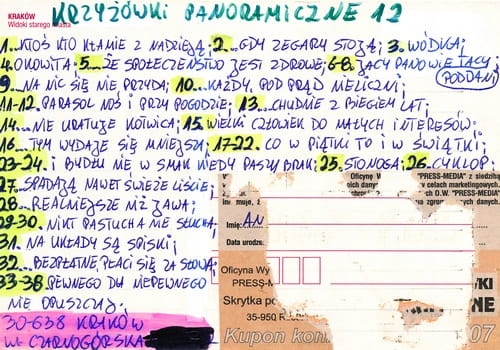 KRZYŻÓWKI PANORAMICZNE 12
KRAKÓW
Widoki starego miasta
1...KTOŚ KTO KŁAMIE Z NADZIEJĄ; 2...GDY ZEGARY STOJĄ; 3. WÓDWGA;
4. OKOWITA; 5...ŻE SPOŁECZEŃSTWO JEST ZDROWE; 6-8. JACY PANOWIE TACY
PODDANI
9...NA NIC SIĘ NIE PRZYDA; 10...KAŻDY, POD PRĄD NIELICZNI;
11-12. PARASOL NOŚ I PRZY POGODZIE; 13...CHUDNIE Z BIEGIEM LAT;
14...NIE URATUJE KOTWICA; 15. WIELKI CZŁOWIEK DO MAŁYCH INTERESÓW;
16...TYM WYDAJE SIĘ MNIEJSZA; 17-22. CO W PIĄTKI TO I W ŚWIĄTKI;
23-24. I BYDŁU NIE W SMAK KIEDY PASZY BRAK; 25. STONOGA; 26. CYKLOP;
27...SPADAJĄ NAWET ŚWIEŻE LIŚCIE;
28...REALNIEJSZE NIŻ JAWA;
29-30. NIKT PASTUCHA NIE SŁUCHA;
31. NA UKŁADY SĄ SPISKI;
32...BEZPŁATNE, PŁACI SIĘ ZA SŁOWA;
33-38. PEWNEGO DLA NIEPEWNEGO
NIE OPUSZCZAJ;
30-638 KRAKÓW
UL. CZARNOGÓRSKA
Oficynę W
"PRESS-MEDIA" z siedzibą
ich danych
w celach marketingowych.
O.W. "PRESS-MEDIA"
Imię: AN
Data urodz.
Oficyna Wy
PRESS-M
Skrytka po
35-950 R
Kupon kon
NE
07